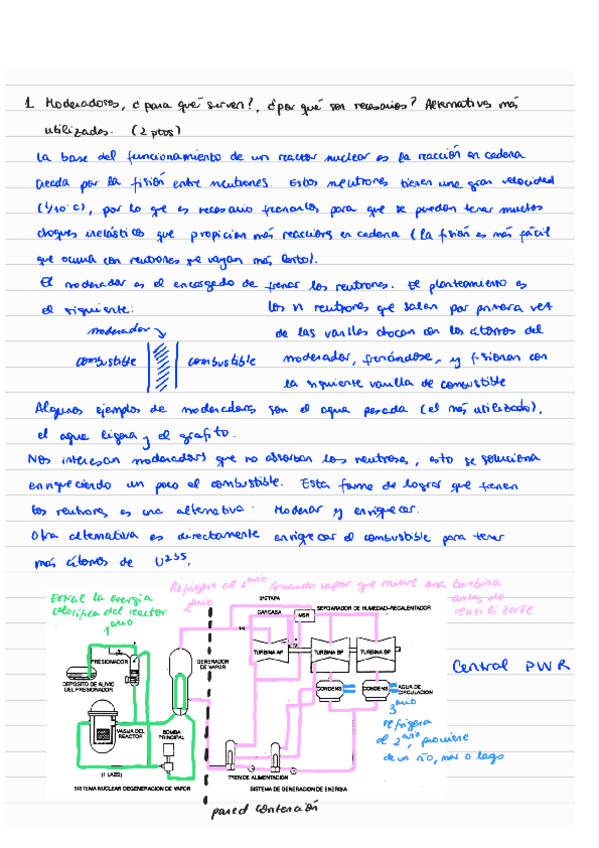 1. Moderadores, ¿para qué sirven?, ¿por qué son necesarios? Alternativas más
utilizadas. (2 ptos)
La base del funcionamiento de un reactor nuclear es la reacción en cadena
creada por la fisión entre neutrones. Estos neutrones tienen una gran velocidad
(1/10 c), por lo que es necesario frenarlos para que se puedan tener muchos
choques inelásticos que propician más reacciones en cadena (la fisión es más fácil
que ocurra con neutrones que vayan más lento).
El moderador es el encargado de frenar los neutrones. El planteamiento es
el siguiente:
los n neutrones que salen por primera vez
de las varillas chocan con los átomos del
moderador, frenándose, y fisionan con
la siguiente varilla de combustible
moderador
combustible
combustible
Algunos ejemplos de moderadores son el agua pesada (el más utilizado),
el agua ligera y el grafito.
Nos interesan moderadores que no absorban los neutrones, esto se soluciona
enriqueciendo un poco el combustible. Esta forma de lograr que frenen
los neutrones es una alternativa: Moderar y enriquecer.
Otra alternativa es directamente enriquecer el combustible para tener
más átomos de U235.
Refrigera al 1ario formando vapor que mueve una turbina
antes de
2ario
Extrae la energía
calorífica del reactor
1ario
2ª ETAPA
CARCASA
MSR
SEPARADOR DE HUMEDAD-RECALENTADOR
PRESIONADOR
GENERADOR
DE VAPOR
TURBINA AP
TURBINA BP
TURBINA BP
Central PWR
DEPOSITO DE ALIVIO
DEL PRESIONADOR
CONDENS
CONDENS
AGUA DE
CIRCULACION
3ario
refrigera
al 2ario, proviene
de un río, mar o lago
VASIJA DEL
REACTOR
BOMBA
PRINCIPAL
(1 LAZO)
TREN DE ALIMENTACION
SISTEMA NUCLEAR DEGENERACION DE VAPOR
SISTEMA DE GENERACION DE ENERGIA
pared contención